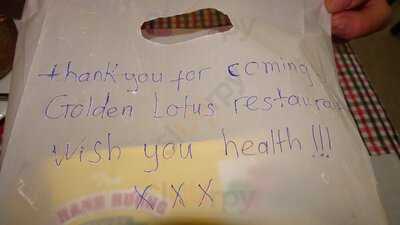 thank you for coming
Golden Lotus restaura
wish you health !!!
X X X